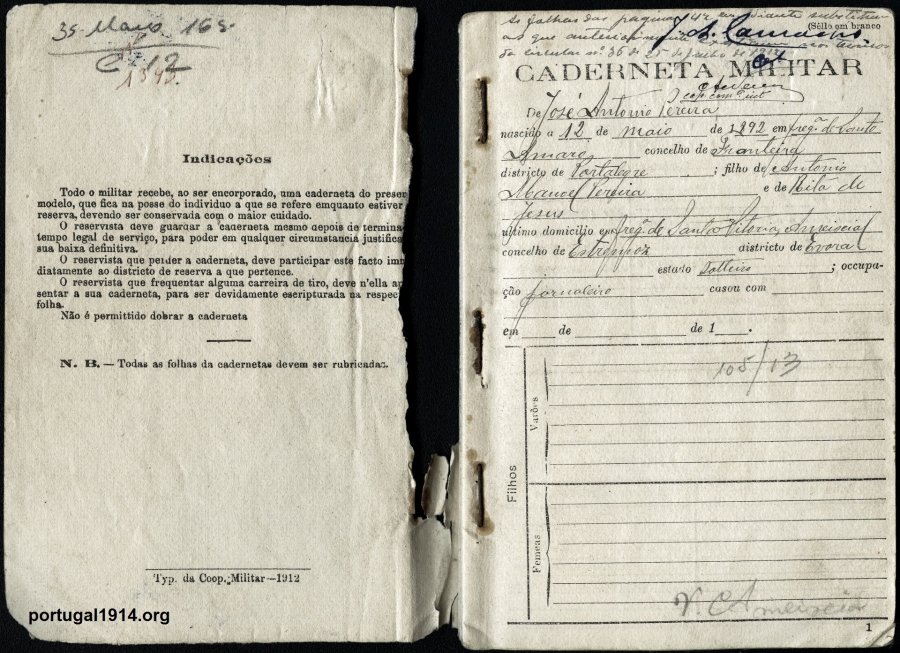 35 Março 165.
C 12
1393.
Indicações
Todo o militar recebe, ao ser encorporado, uma caderneta do presen
modelo, que fica na posse do individuo a que se refere emquanto estiver
reserva, devendo ser conservada com o maior cuidado.
O reservista deve guardar a caderneta mesmo depois de termina
tempo legal de serviço, para poder em qualquer circumstancia justifica
sua baixa definitiva.
O reservista que perder a caderneta, deve participar este facto im
diatamente ao districto de reserva a que pertence.
O reservista que frequentar alguma carreira de tiro, deve n'ella ap
sentar a sua caderneta, para ser devidamente escripturada na respec
folha.
Não é permittido dobrar a caderneta
N. B. — Todas as folhas da cadernetas devem ser rubricadas.
Typ. da Coop. Militar—1912
portugal1914.org
As folhas das paginas 42 em diante substituem
(Sêllo em branco
as que
da circular nº 36 de 25 de Julho de 1912
CADERNETA MILITAR
De José Antonio Pereira
nascido a 12 de maio de 1892 em freg. de Santo
Amaro, concelho de Fronteira
districto de Portalegre ; filho de Antonio
Manuel Pereira e de Rita de
Jesus
ultimo domicilio em freg. de Santa Vitoria Ameixial
concelho de Estremoz districto de Evora
estado solteiro ; occupa-
ção jornaleiro casou com
em de de 1 .
105/13
Filhos
Varões
Femeas
V. C. Ameixial
1